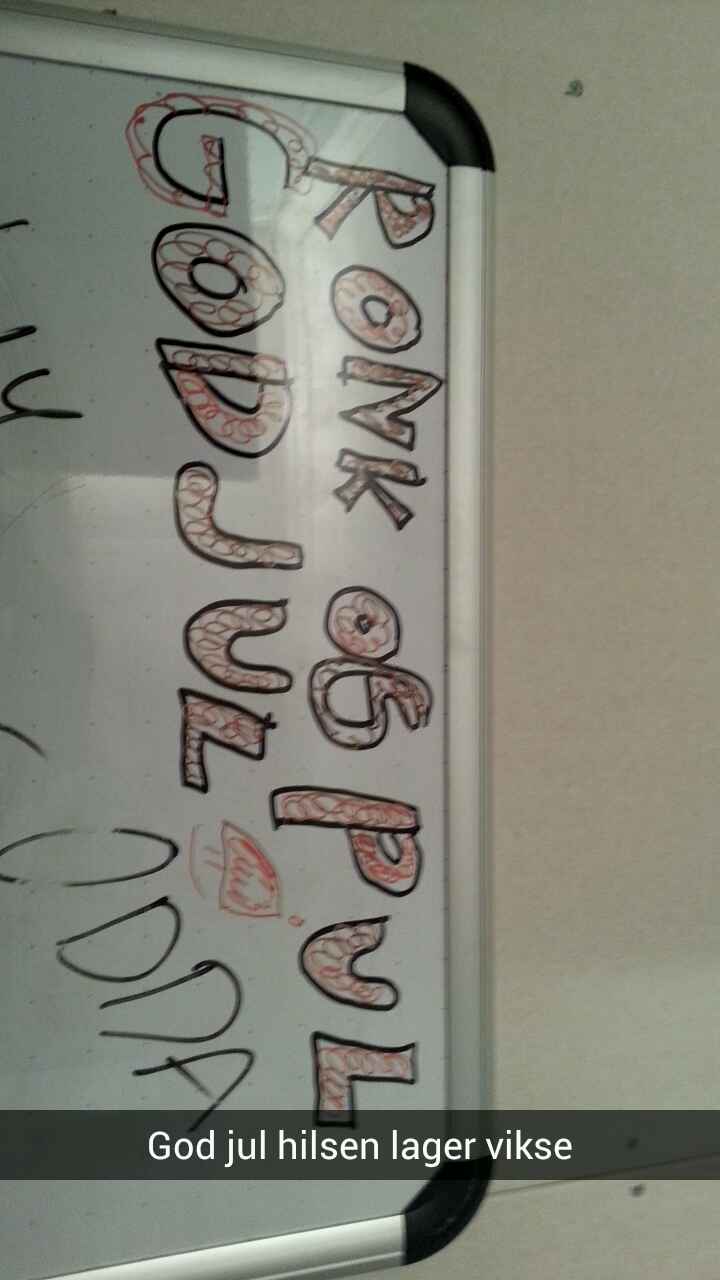 RONK OG PUL
GOD JUL
ODDA
God jul hilsen lager vikse